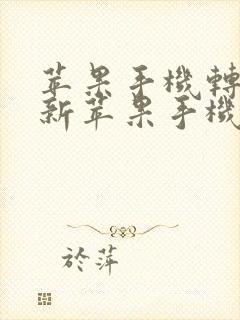 苹果手機轉
新苹果手機
於萍